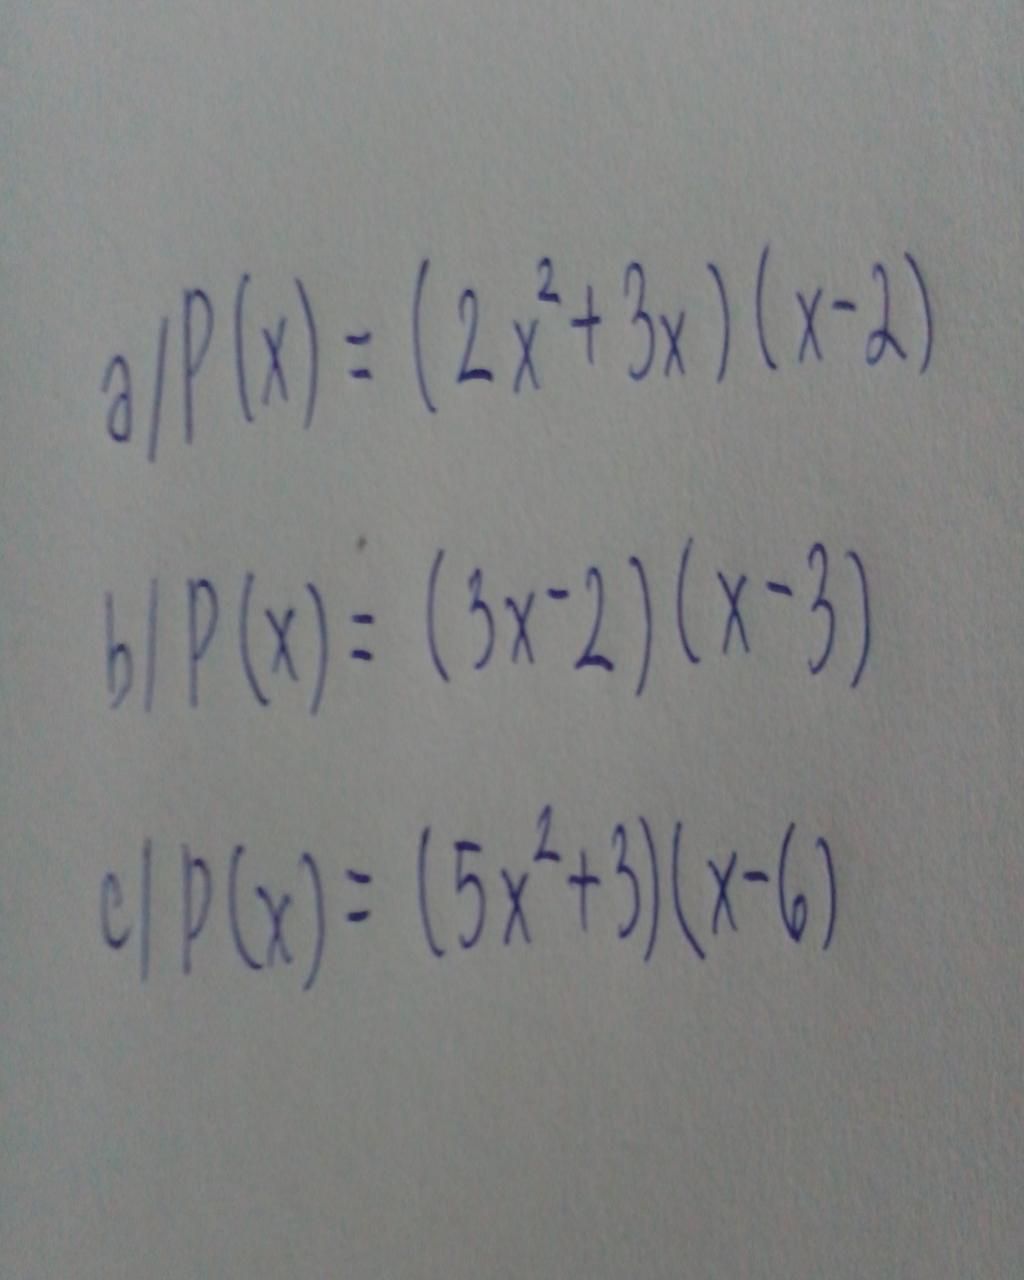 a/P(x) = (2x²+3x)(x-2)
b/P(x) = (3x-2)(x-3)
c/P(x) = (5x²+3)(x-6)